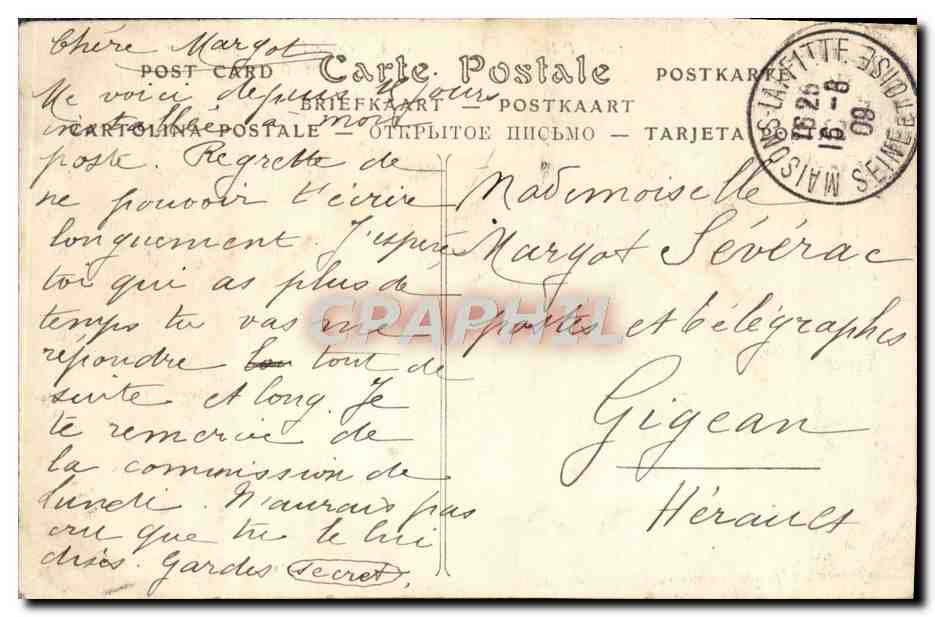 Chère Margot
POST CARD Carte Postale POSTKARTE
Me voici depuis jours
BRIEFKAART — POSTKAART
installée à mon
CARTOLINA POSTALE — ОТКРЫТОЕ ПИСЬМО — TARJETA PO
poste. Regrette de
ne pouvoir t'écrire
longuement. J'espère
toi qui as plus de
temps tu vas me
répondre tout de
suite et long. Je
te remercie de
la commission de
lundi. N'aurais pas
cru que tu le lui
dises. Gardes secret.
MAISONS-LAFFITTE SEINE-ET-OISE
16 25
16 - 6
09
Mademoiselle
Margot Sévérac
postes et télégraphes
Gigean
Hérault
CPAPHIL